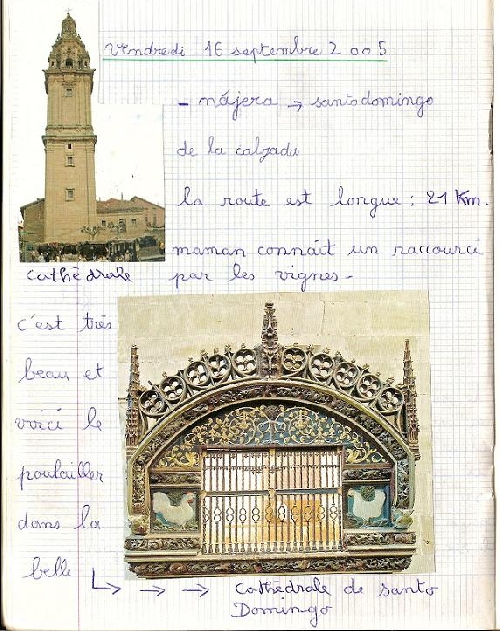 vendredi 16 septembre 2005
- nájera → santo domingo
de la calzada
la route est longue : 21 Km.
maman connait un raccourci
cathédrale par les vignes -
c'est très
beau et
voici le
poulailler
dans la
belle → → → Cathédrale de santo
Domingo